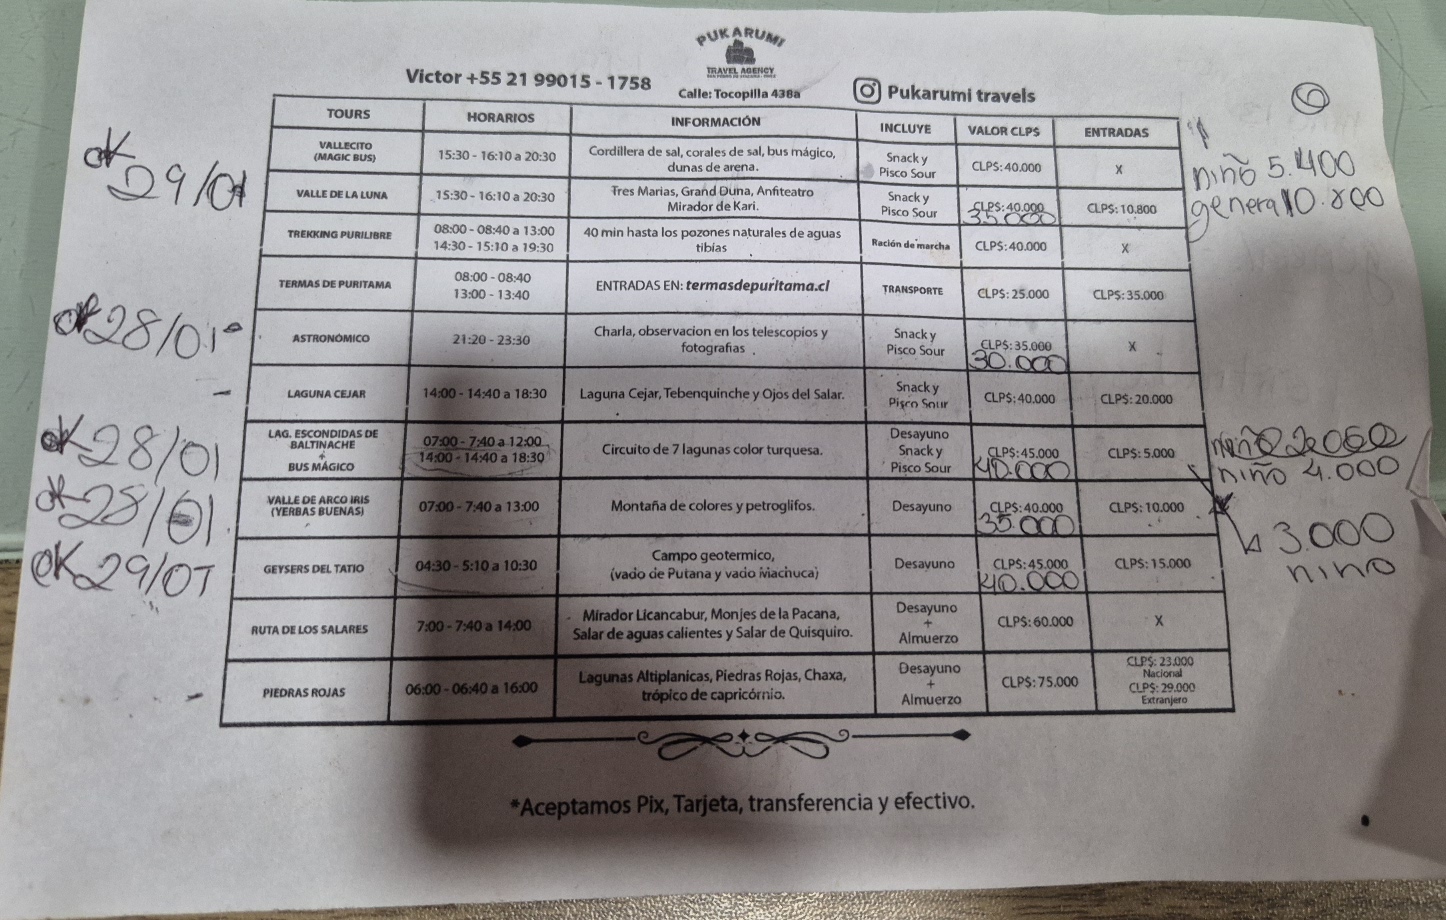 PUKARUMI
TRAVEL AGENCY
Victor +55 21 99015 - 1758
Calle: Tocopilla 438a
Pukarumi travels
TOURS HORARIOS INFORMACIÓN INCLUYE VALOR CLPS ENTRADAS
VALLECITO
(MAGIC BUS)
15:30 - 16:10 a 20:30
Cordillera de sal, corales de sal, bus mágico,
dunas de arena.
Snack y
Pisco Sour
CLP$: 40.000
X
ok
29/01
VALLE DE LA LUNA
15:30 - 16:10 a 20:30
Tres Marias, Grand Duna, Anfiteatro
Mirador de Kari.
Snack y
Pisco Sour
CLP$: 40.000
35.000
CLP$: 10.800
niño 5.400
general 10.800
TREKKING PURILIBRE
08:00 - 08:40 a 13:00
14:30 - 15:10 a 19:30
40 min hasta los pozones naturales de aguas
tibias
Ración de marcha
CLP$: 40.000
X
TERMAS DE PURITAMA
08:00 - 08:40
13:00 - 13:40
ENTRADAS EN: termasdepuritama.cl
TRANSPORTE
CLP$: 25.000
CLP$: 35.000
ok 28/01
ASTRONÓMICO
21:20 - 23:30
Charla, observacion en los telescopios y
fotografias
Snack y
Pisco Sour
CLP$: 35.000
30.000
X
-
LAGUNA CEJAR
14:00 - 14:40 a 18:30
Laguna Cejar, Tebenquinche y Ojos del Salar.
Snack y
Pisco Sour
CLP$: 40.000
CLP$: 20.000
ok 28/01
LAG. ESCONDIDAS DE
BALTINACHE
+
BUS MÁGICO
07:00 - 7:40 a 12:00
14:00 - 14:40 a 18:30
Circuito de 7 lagunas color turquesa.
Desayuno
Snack y
Pisco Sour
CLP$: 45.000
40.000
CLP$: 5.000
niño 4.000
ok 28/01
VALLE DE ARCO IRIS
(YERBAS BUENAS)
07:00 - 7:40 a 13:00
Montaña de colores y petroglifos.
Desayuno
CLP$: 40.000
35.000
CLP$: 10.000
3.000
nino
OK 29/01
GEYSERS DEL TATIO
04:30 - 5:10 a 10:30
Campo geotermico,
(vado de Putana y vado Machuca)
Desayuno
CLP$: 45.000
40.000
CLP$: 15.000
RUTA DE LOS SALARES
7:00 - 7:40 a 14:00
Mirador Licancabur, Monjes de la Pacana,
Salar de aguas calientes y Salar de Quisquiro.
Desayuno
+
Almuerzo
CLP$: 60.000
X
-
PIEDRAS ROJAS
06:00 - 06:40 a 16:00
Lagunas Altiplanicas, Piedras Rojas, Chaxa,
trópico de capricórnio.
Desayuno
+
Almuerzo
CLP$: 75.000
CLP$: 23.000
Nacional
CLP$: 29.000
Extranjero
*Aceptamos Pix, Tarjeta, transferencia y efectivo.